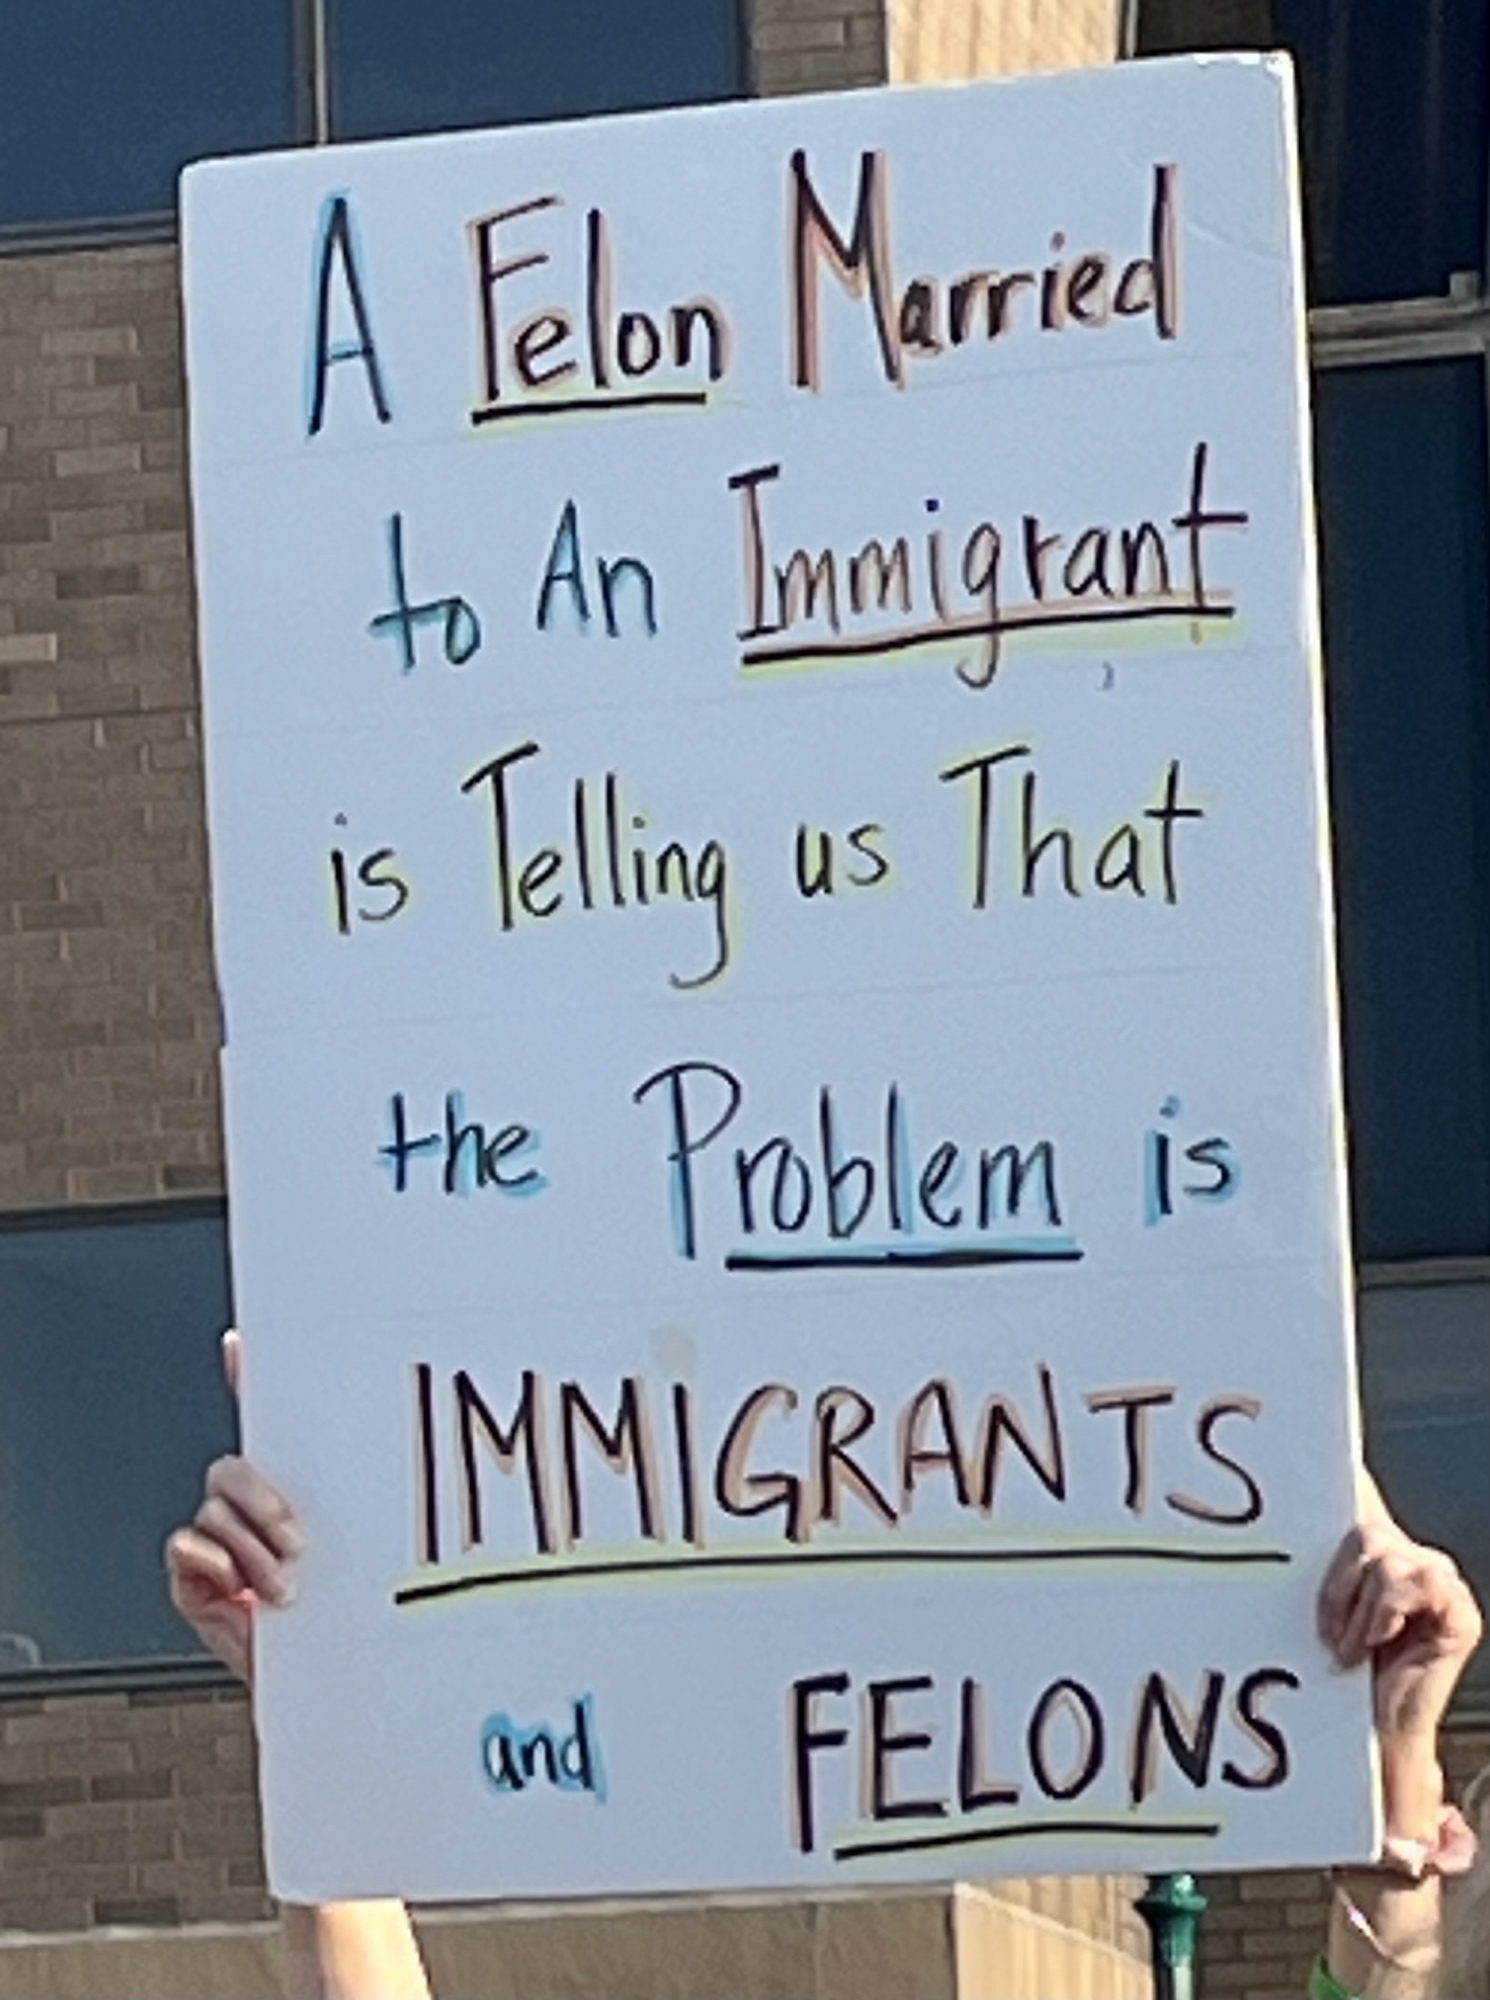 A Felon Married
to An Immigrant
is Telling us That
the Problem is
IMMIGRANTS
and FELONS